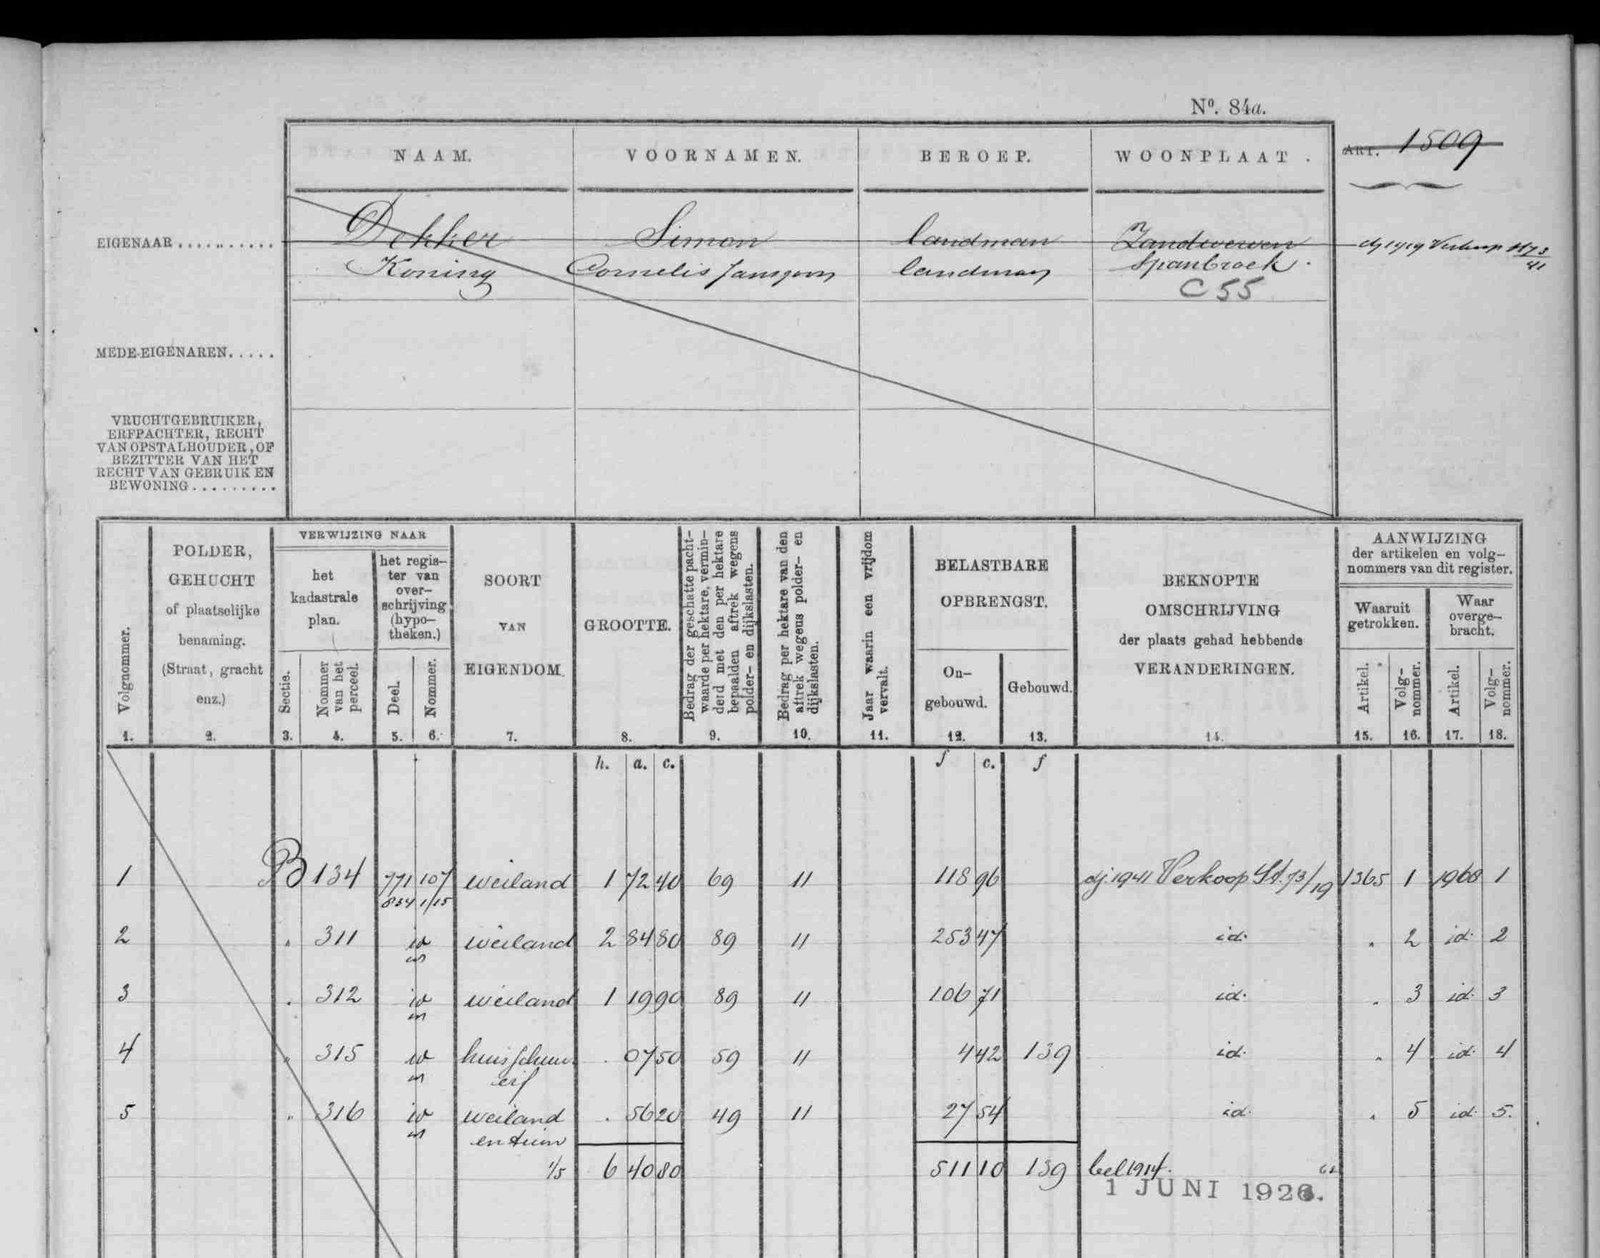 Nº. 84a.
NAAM. VOORNAMEN. BEROEP. WOONPLAAT .
ART. 1509
EIGENAAR . . . . . . . . . . . Dekker Simon landman Zandwerven dj 1919 Verkoop
Koning Cornelis Janszoon landman Spanbroek.
C 55
MEDE-EIGENAREN. . . . .
VRUCHTGEBRUIKER,
ERFPACHTER, RECHT
VAN OPSTALHOUDER, OF
BEZITTER VAN HET
RECHT VAN GEBRUIK EN
BEWONING . . . . . . . . .
Volgnommer.
1.
POLDER,
GEHUCHT
of plaatselijke
benaming.
(Straat, gracht
enz.)
2.
VERWIJZING NAAR
het
kadastrale
plan.
Sectie.
3.
Nommer
van het
perceel.
4.
het regis-
ter van
over-
schrijving
(hypo-
theken.)
Deel.
5.
Nommer.
6.
SOORT
VAN
EIGENDOM.
7.
GROOTTE.
8.
Bedrag der geschatte pacht-
waarde per hektare, vermin-
derd met den per hektare
bepaalden aftrek wegens
polder- en dijkslasten.
9.
Bedrag per hektare van den
aftrek wegens polder- en
dijkslasten.
10.
Jaar waarin een vrijdom
vervalt.
11.
BELASTBARE
OPBRENGST.
On-
gebouwd.
12.
Gebouwd.
13.
BEKNOPTE
OMSCHRIJVING
der plaats gehad hebbende
VERANDERINGEN.
14.
AANWIJZING
der artikelen en volg-
nommers van dit register.
Waaruit
getrokken.
Artikel.
15.
Volg-
nommer.
16.
Waar
overge-
bracht.
Artikel.
17.
Volg-
nommer.
18.
h. a. c. f c. f
1 B 134 771 107 weiland 1 72 40 69 11 118 96 dj. 1941 Verkoop 73/19 1365 1 1968 1
834 1/15
2 . 311 id weiland 2 84 80 89 11 253 47 id. . 2 id. 2
3 . 312 id weiland 1 19 90 89 11 106 71 id. . 3 id. 3
4 . 315 id huis schuur . 07 50 59 11 4 42 139 id. . 4 id. 4
erf
5 . 316 id weiland . 56 20 49 11 27 54 id. . 5 id. 5.
en tuin
1/5 6 40 80 511 10 139 bel 1914.
1 JUNI 1926.